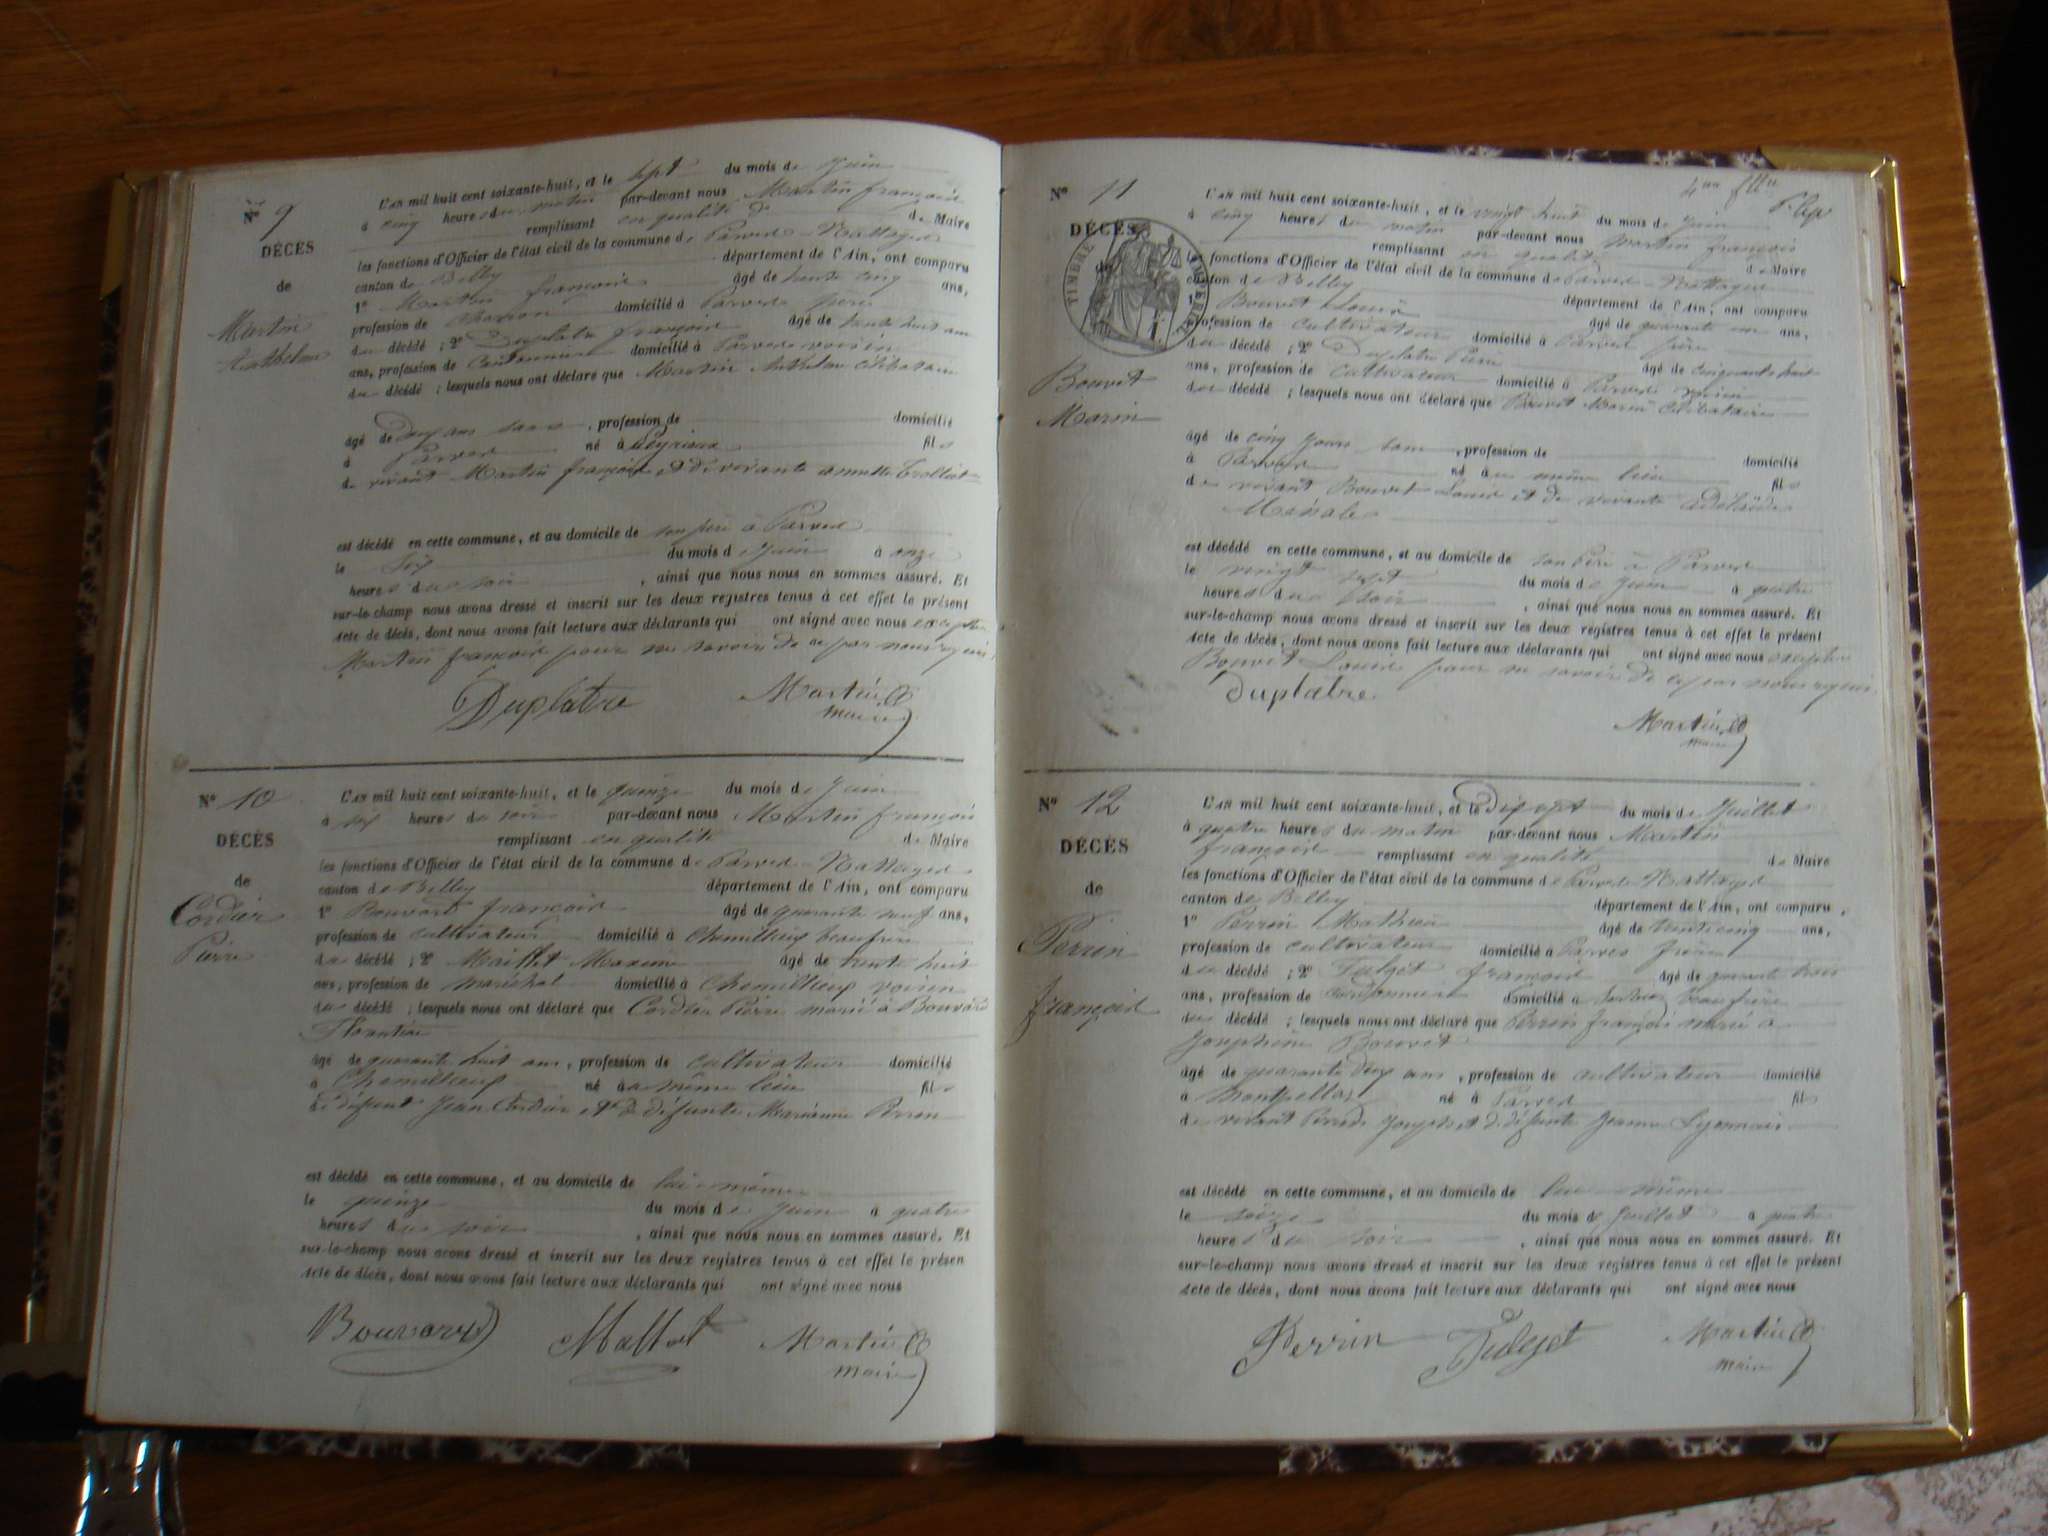 N° 9
DÉCÈS
de
Martin
Anthelme
L'AN mil huit cent soixante-huit, et le sept du mois de Juin
à cinq heures du matin par-devant nous Martin françois
remplissant en qualité de de Maire
les fonctions d'Officier de l'état civil de la commune de Parves-Nattages
canton de Belley département de l'Ain, ont comparu
1° Martin françois âgé de trente cinq ans,
profession de domicilié à Parves père
du décédé ; 2° Duplatre françois âgé de trente huit ans
ans, profession de Cantonnier domicilié à Parves voisin
du décédé ; lesquels nous ont déclaré que Martin Anthelme célibataire
âgé de deux ans sans , profession de domicilié
à Parves né à Peyrieux fils
de vivant Martin françois et de vivante annette
est décédé en cette commune, et au domicile de son père à Parves
le six du mois de Juin à onze
heures du soir , ainsi que nous nous en sommes assuré. Et
sur-le-champ nous avons dressé et inscrit sur les deux registres tenus à cet effet le présent
acte de décès, dont nous avons fait lecture aux déclarants qui ont signé avec nous excepté
Martin françois pour ne savoir de ce par nous requis
Duplatre Martin
maire
N° 10
DÉCÈS
de
Cordier
Pierre
L'AN mil huit cent soixante-huit, et le quinze du mois de Juin
à six heures du soir par-devant nous Martin françois
remplissant en qualité de Maire
les fonctions d'Officier de l'état civil de la commune de Parves-Nattages
canton de Belley département de l'Ain, ont comparu
1° Bouvard françois âgé de quarante neuf ans,
profession de cultivateur domicilié à Chemillieu beaufrère
du décédé ; 2° Maillet Maxime âgé de trente huit
ans, profession de maréchal domicilié à Chemillieu voisin
du décédé ; lesquels nous ont déclaré que Cordier Pierre marié à Bouvard
Florentine
âgé de quarante huit ans , profession de cultivateur domicilié
à Chemillieu né au même lieu fils
de défunt Jean Cordier et de défunte Marianne Perron
est décédé en cette commune, et au domicile de lui-même
le quinze du mois de Juin à quatre
heures du soir , ainsi que nous nous en sommes assuré. Et
sur-le-champ nous avons dressé et inscrit sur les deux registres tenus à cet effet le présen
acte de décès, dont nous avons fait lecture aux déclarants qui ont signé avec nous
Bouvard Mallet Martin
maire
N° 11
DÉCÈS
TIMBRE IMPÉRIAL
Bouvet
Marin
L'AN mil huit cent soixante-huit, et le vingt huit du mois de Juin
à cinq heures du matin par-devant nous Martin françois
remplissant en qualité de Maire
les fonctions d'Officier de l'état civil de la commune de Parves-Nattages
canton de Belley département de l'Ain, ont comparu
1° Bouvet Louis âgé de quarante un ans,
profession de cultivateur domicilié à Parves père
du décédé ; 2° Duplatre Pierre âgé de cinquante huit
ans, profession de cultivateur domicilié à Parves voisin
du décédé ; lesquels nous ont déclaré que Bouvet Marin célibataire
âgé de cinq jours sans , profession de domicilié
à Parves né au même lieu fils
de vivant Bouvet Louis et de vivante Adélaïde
est décédé en cette commune, et au domicile de son Père à Parves
le vingt sept du mois de Juin à quatre
heures du soir , ainsi que nous nous en sommes assuré. Et
sur-le-champ nous avons dressé et inscrit sur les deux registres tenus à cet effet le présent
acte de décès, dont nous avons fait lecture aux déclarants qui ont signé avec nous excepté
Bouvet Louis pour ne savoir de ce par nous requis
Duplatre
Martin
maire
N° 12
DÉCÈS
de
Perrin
françois
L'AN mil huit cent soixante-huit, et le dix sept du mois de Juillet
à quatre heures du matin par-devant nous Martin
françois remplissant en qualité de Maire
les fonctions d'Officier de l'état civil de la commune de Parves-Nattages
canton de Belley département de l'Ain, ont comparu,
1° Perrin Mathieu âgé de trente cinq ans,
profession de cultivateur domicilié à Parves frère
du décédé ; 2° françois âgé de quarante trois
ans, profession de cordonnier domicilié à beaufrère
du décédé ; lesquels nous ont déclaré que Perrin françois marié à
Josephine Bouvet
âgé de quarante deux ans , profession de cultivateur domicilié
à Montpellas né à Parves fils
de vivant Joseph et de défunte Jeanne Lyonnais
est décédé en cette commune, et au domicile de lui-même
le seize du mois de Juillet à quatre
heures du soir , ainsi que nous nous en sommes assuré. Et
sur-le-champ nous avons dressé et inscrit sur les deux registres tenus à cet effet le présent
acte de décès, dont nous avons fait lecture aux déclarants qui ont signé avec nous
Perrin Martin
maire